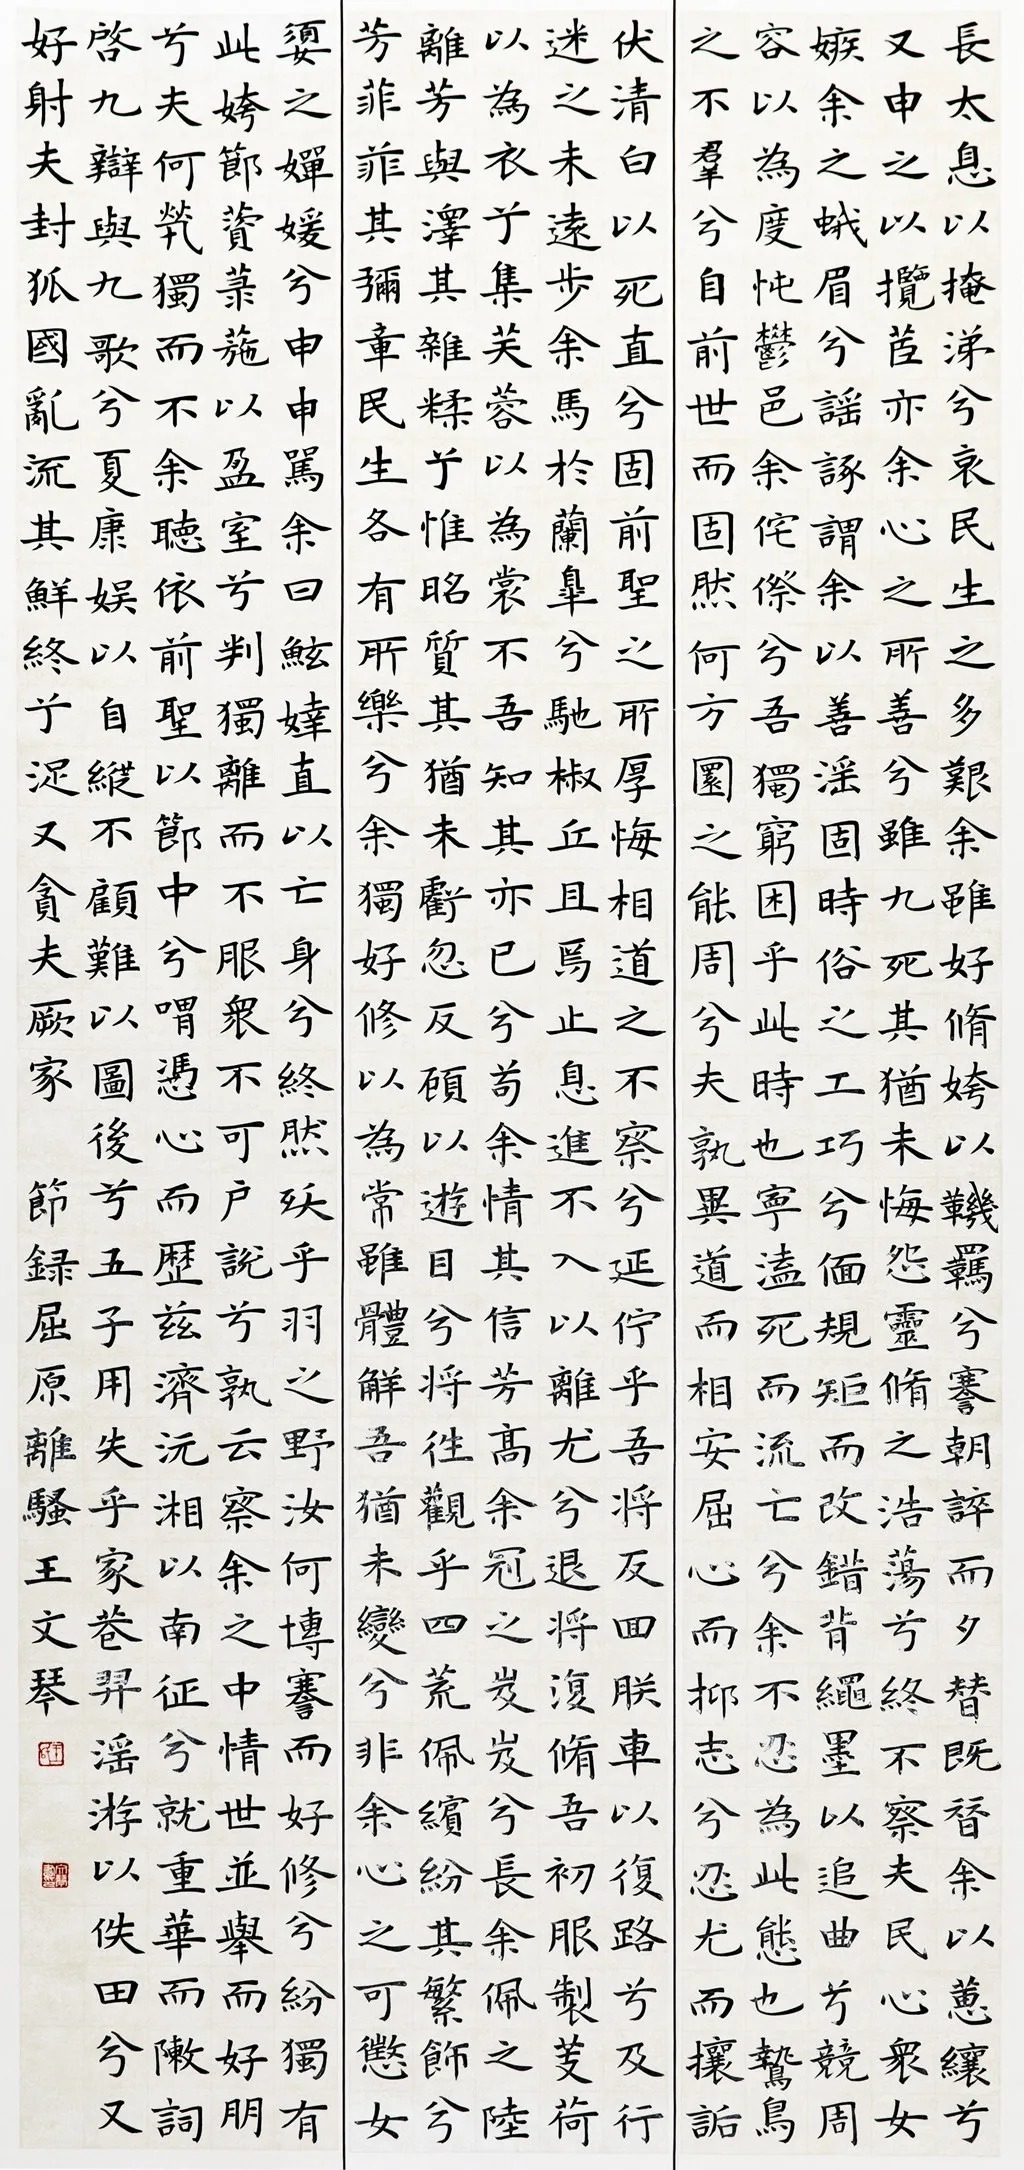 長太息以掩涕兮哀民生之多艱余雖好脩姱以鞿羈兮謇朝誶而夕替既替余以蕙纕兮
又申之以攬茝亦余心之所善兮雖九死其猶未悔怨靈脩之浩蕩兮終不察夫民心眾女
嫉余之蛾眉兮謠諑謂余以善淫固時俗之工巧兮偭規矩而改錯背繩墨以追曲兮競周
容以為度忳鬱邑余侘傺兮吾獨窮困乎此時也寧溘死而流亡兮余不忍為此態也鷙鳥
之不羣兮自前世而固然何方圜之能周兮夫孰異道而相安屈心而抑志兮忍尤而攘詬
伏清白以死直兮固前聖之所厚悔相道之不察兮延佇乎吾将反回朕車以復路兮及行
迷之未遠步余馬於蘭皋兮馳椒丘且焉止息進不入以離尤兮退将復脩吾初服製芰荷
以為衣兮集芙蓉以為裳不吾知其亦已兮苟余情其信芳高余冠之岌岌兮長余佩之陸
離芳與澤其雜糅兮惟昭質其猶未虧忽反顧以遊目兮将往觀乎四荒佩繽紛其繁飾兮
芳菲菲其彌章民生各有所樂兮余獨好修以為常雖體解吾猶未變兮非余心之可懲女
嬃之嬋媛兮申申罵余曰鮌婞直以亡身兮終然殀乎羽之野汝何博謇而好修兮紛獨有
此姱節薋菉葹以盈室兮判獨離而不服眾不可户説兮孰云察余之中情世並舉而好朋
兮夫何煢獨而不余聽依前聖以節中兮喟憑心而歷茲濟沅湘以南征兮就重華而敶詞
啓九辯與九歌兮夏康娱以自縱不顧難以圖後兮五子用失乎家巷羿淫游以佚田兮又
好射夫封狐國亂流其鮮終兮浞又貪夫厥家 節録屈原離騷王文琴